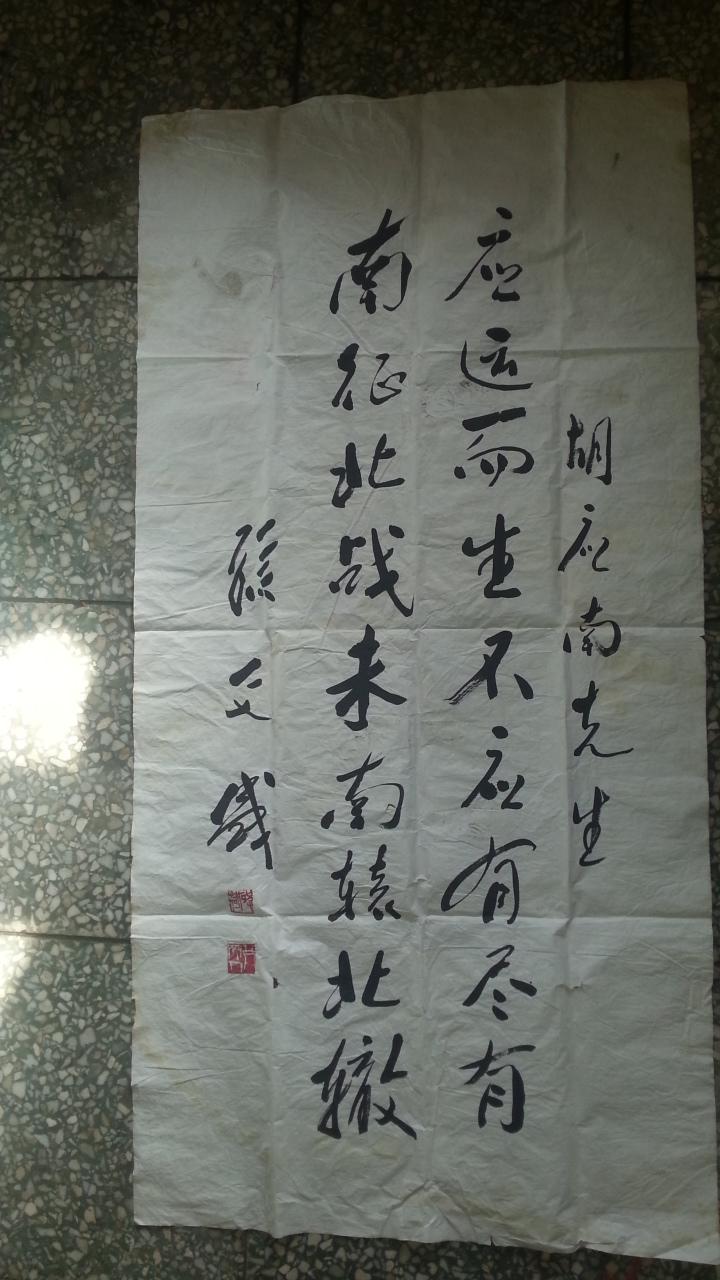 胡应南先生
应运而生不应有尽有
南征北战未南辕北辙
文盛